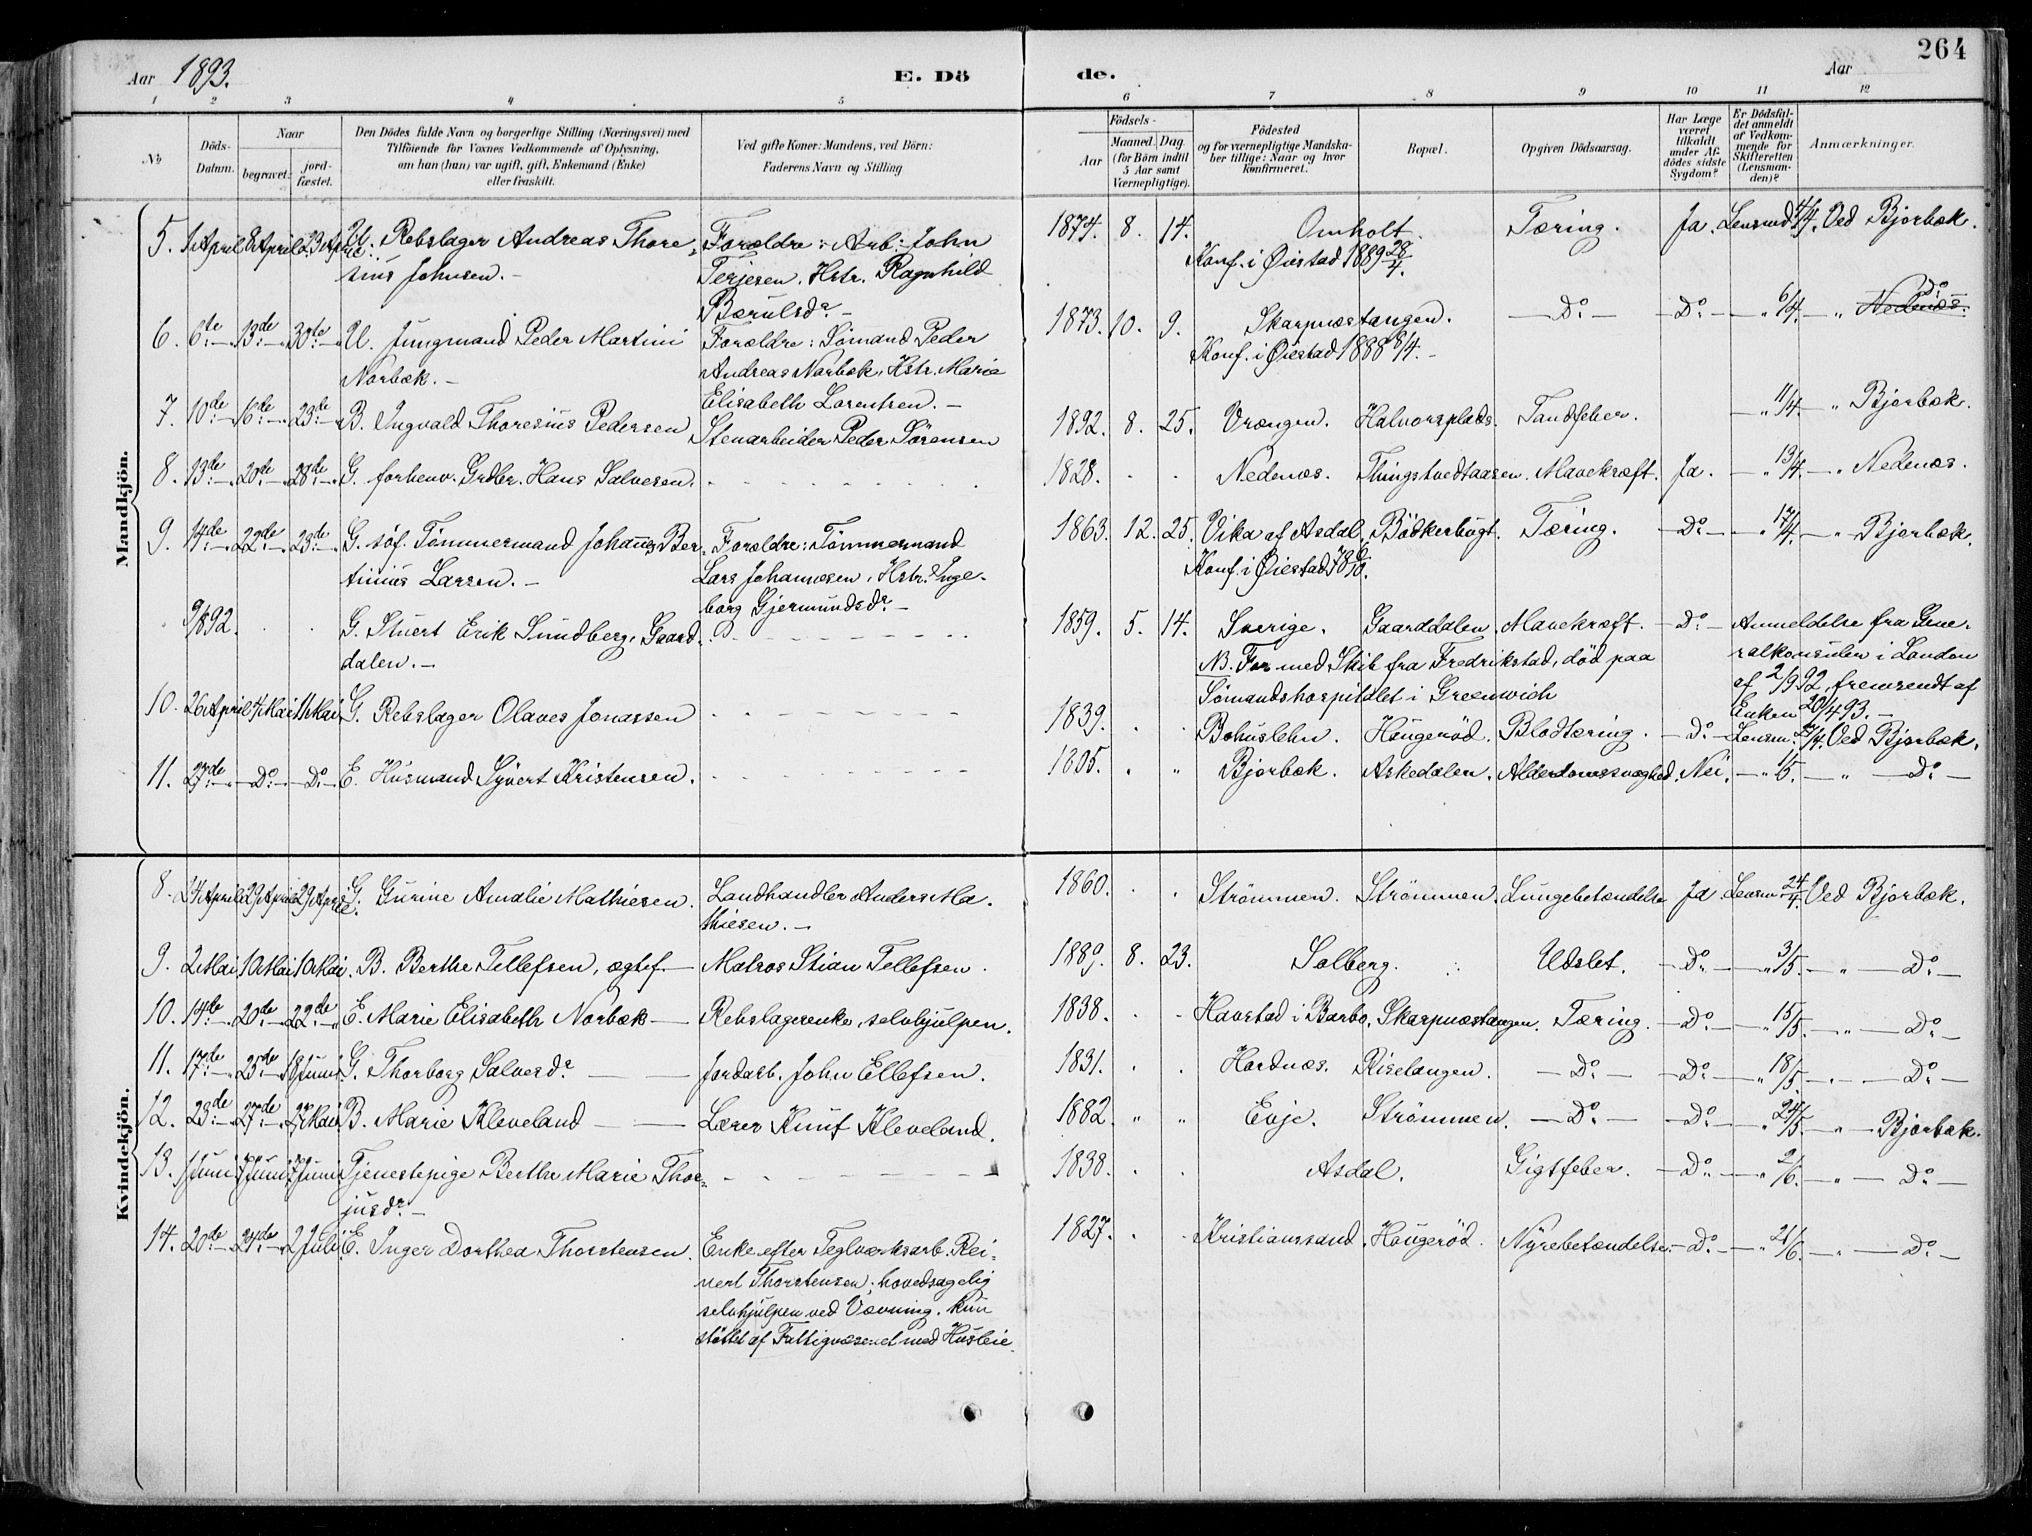 Aar 1893. E. Dö
de. Aar 264
1 2 3 4 5 6 7 8 9 10 11 12
№ Döds-Datum. Naar begravet. jord-fæstet. Den Dödes fulde Navn og borgerlige Stilling (Næringsvei) med Tilföiende for Voxnes Vedkommende af Oplysning, om han (hun) var ugift, gift, Enkemand (Enke) eller fraskilt. Ved gifte Koner: Mandens, ved Börn: Faderens Navn og Stilling
Födsels- Aar Maaned. Dag. (for Börn indtil 5 Aar samt Værnepligtige). Födested og for værnepligtige Mandskaber tillige: Naar og hvor konfirmeret. Bopæl. Opgiven Dödsaarsag. Har Læge været tilkaldt under Afdödes sidste Sygdom? Er Dödsfaldet anmeldt af Vedkommende for Skifteretten (Lensmanden)? Anmærkninger.
Mandkjön.
5. 1 April 8 April 23 April U. Rebslager Andreas Thore- Forældre: Arb: John 1874. 8. 14. Omholt. Tæring. Ja. Lensmd 4/4. Ved Bjorbæk.
sius Johnsen. – Terjesen. Hstr. Ragnhild Konf. i Øiestad 1889 28/4.
Bærulsdr. –
6. 6te 13de 30te U. Jungmand Peder Martini Forældre: Sömand Peder 1873. 10. 9. Skarpnæstangen. Do – Do – " 6/4. – " Do Nedenæs.
Norbæk. – Andreas Norbæk, Hstr. Marie Konf. i Øiestad 1888 8/4. –
Elisabeth Lorentsen. –
7. 10de 16de 23de B. Ingvald Thoresius Pedersen Stenarbeider Peder Sörensen 1892. 8. 25. Vrængen. Halvorsplads. Tandfeber. – " 11/4. – " Bjorbæk.
8. 13de 20de 28de G. forhenv. Grdbr. Hans Salvesen. 1828. Nedenæs. Thingstvedtaasen. Mavekræft. Ja. – " 13/4. – " Nedenæs.
9. 14de 22de 23de G. söf. Tömmermand Johannes Ber- Forældre: Tömmermand 1863. 12. 25. Vika af Asdal. Bödkerbugt. Tæring. – Do – " 17/4. – " Bjorbæk.
tinius Larsen. – Lars Johannesen, Hstr. Inge- Konf. i Øiestad
borg Gjermundsdr. –
9/892. G. Stuert Erik Sundberg, Gaard- 1859. 5. 14. Sverige. Gaarddalen. Mavekræft. – Do – Anmeldelse fra Gene-
dalen. – NB. For med Skib fra Fredrikstad, död paa ralkonsulen i London
Sömandshospitalet i Greenwich af 2/9 92, fremsendt af
Enken 20/4 93. –
10. 26 April 4 Mai 11 Mai G. Rebslager Olaves Jonassen 1839. Bohuslehn. Haugeröd. Blodtæring. – Do – Lensm. 27/4. Ved Bjorbæk.
11. 27de – Do – – Do – E. Husmand Syvert Kristensen. 1805. Bjorbæk. Askedalen. Alderdomssvaghed. Nei. – " 1/5. – " – Do –
Kvindekjön.
8. 24 April 29 April 29 April G. Gurine Amalie Mathiesen. Landhandler Anders Ma- 1860. Strömmen. Strömmen. Lungebetændelse Ja Lensm 24/4. Ved Bjorbæk.
thiesen. –
9. 2 Mai 10 Mai 10 Mai. B. Berthe Tellefsen, ægtef. – Matros Stian Tellefsen. 1889. 8. 23. Solberg. Udslet. – Do – " 3/5. – " – Do –
10. 14de 20de 22de E. Marie Elisabeth Norbæk – Rebslagerenke, selvhjulpen. 1838. Havstad i Barbo. Skarpnæstangen. Tæring. – Do – " 15/5. – " – Do –
11. 17de 25de 18 Juni G. Thorborg Salvesdr. – Jordarb. John Ellefsen. 1831. Hordnæs. Riselangen. – Do – – Do – " 18/5. – " – Do –
12. 23de 27de 27 Mai B. Marie Kleveland – Lærer Knut Kleveland. 1882. Evje. Strömmen. – Do – – Do – " 24/5. – " Bjorbæk.
13. 1 Juni 7 Juni 7 Juni Tjenestepige Berthe Marie Thor- 1838. Asdal. Gigtfeber. – Do – " 2/6. – " – Do –
jusdr. –
14. 20de 24de 2 Juli E. Inger Dorthea Thorstensen. Enke efter Teglværksarb. Rei- 1827. Kristianssand. Haugeröd. Nyrebetændelse. – Do – " 21/6. – " – Do –
nert Thorstensen; hovedsagelig
selvhjulpen ved Vævning. kun
stöttet af Fattigvæsenet med Husleie.